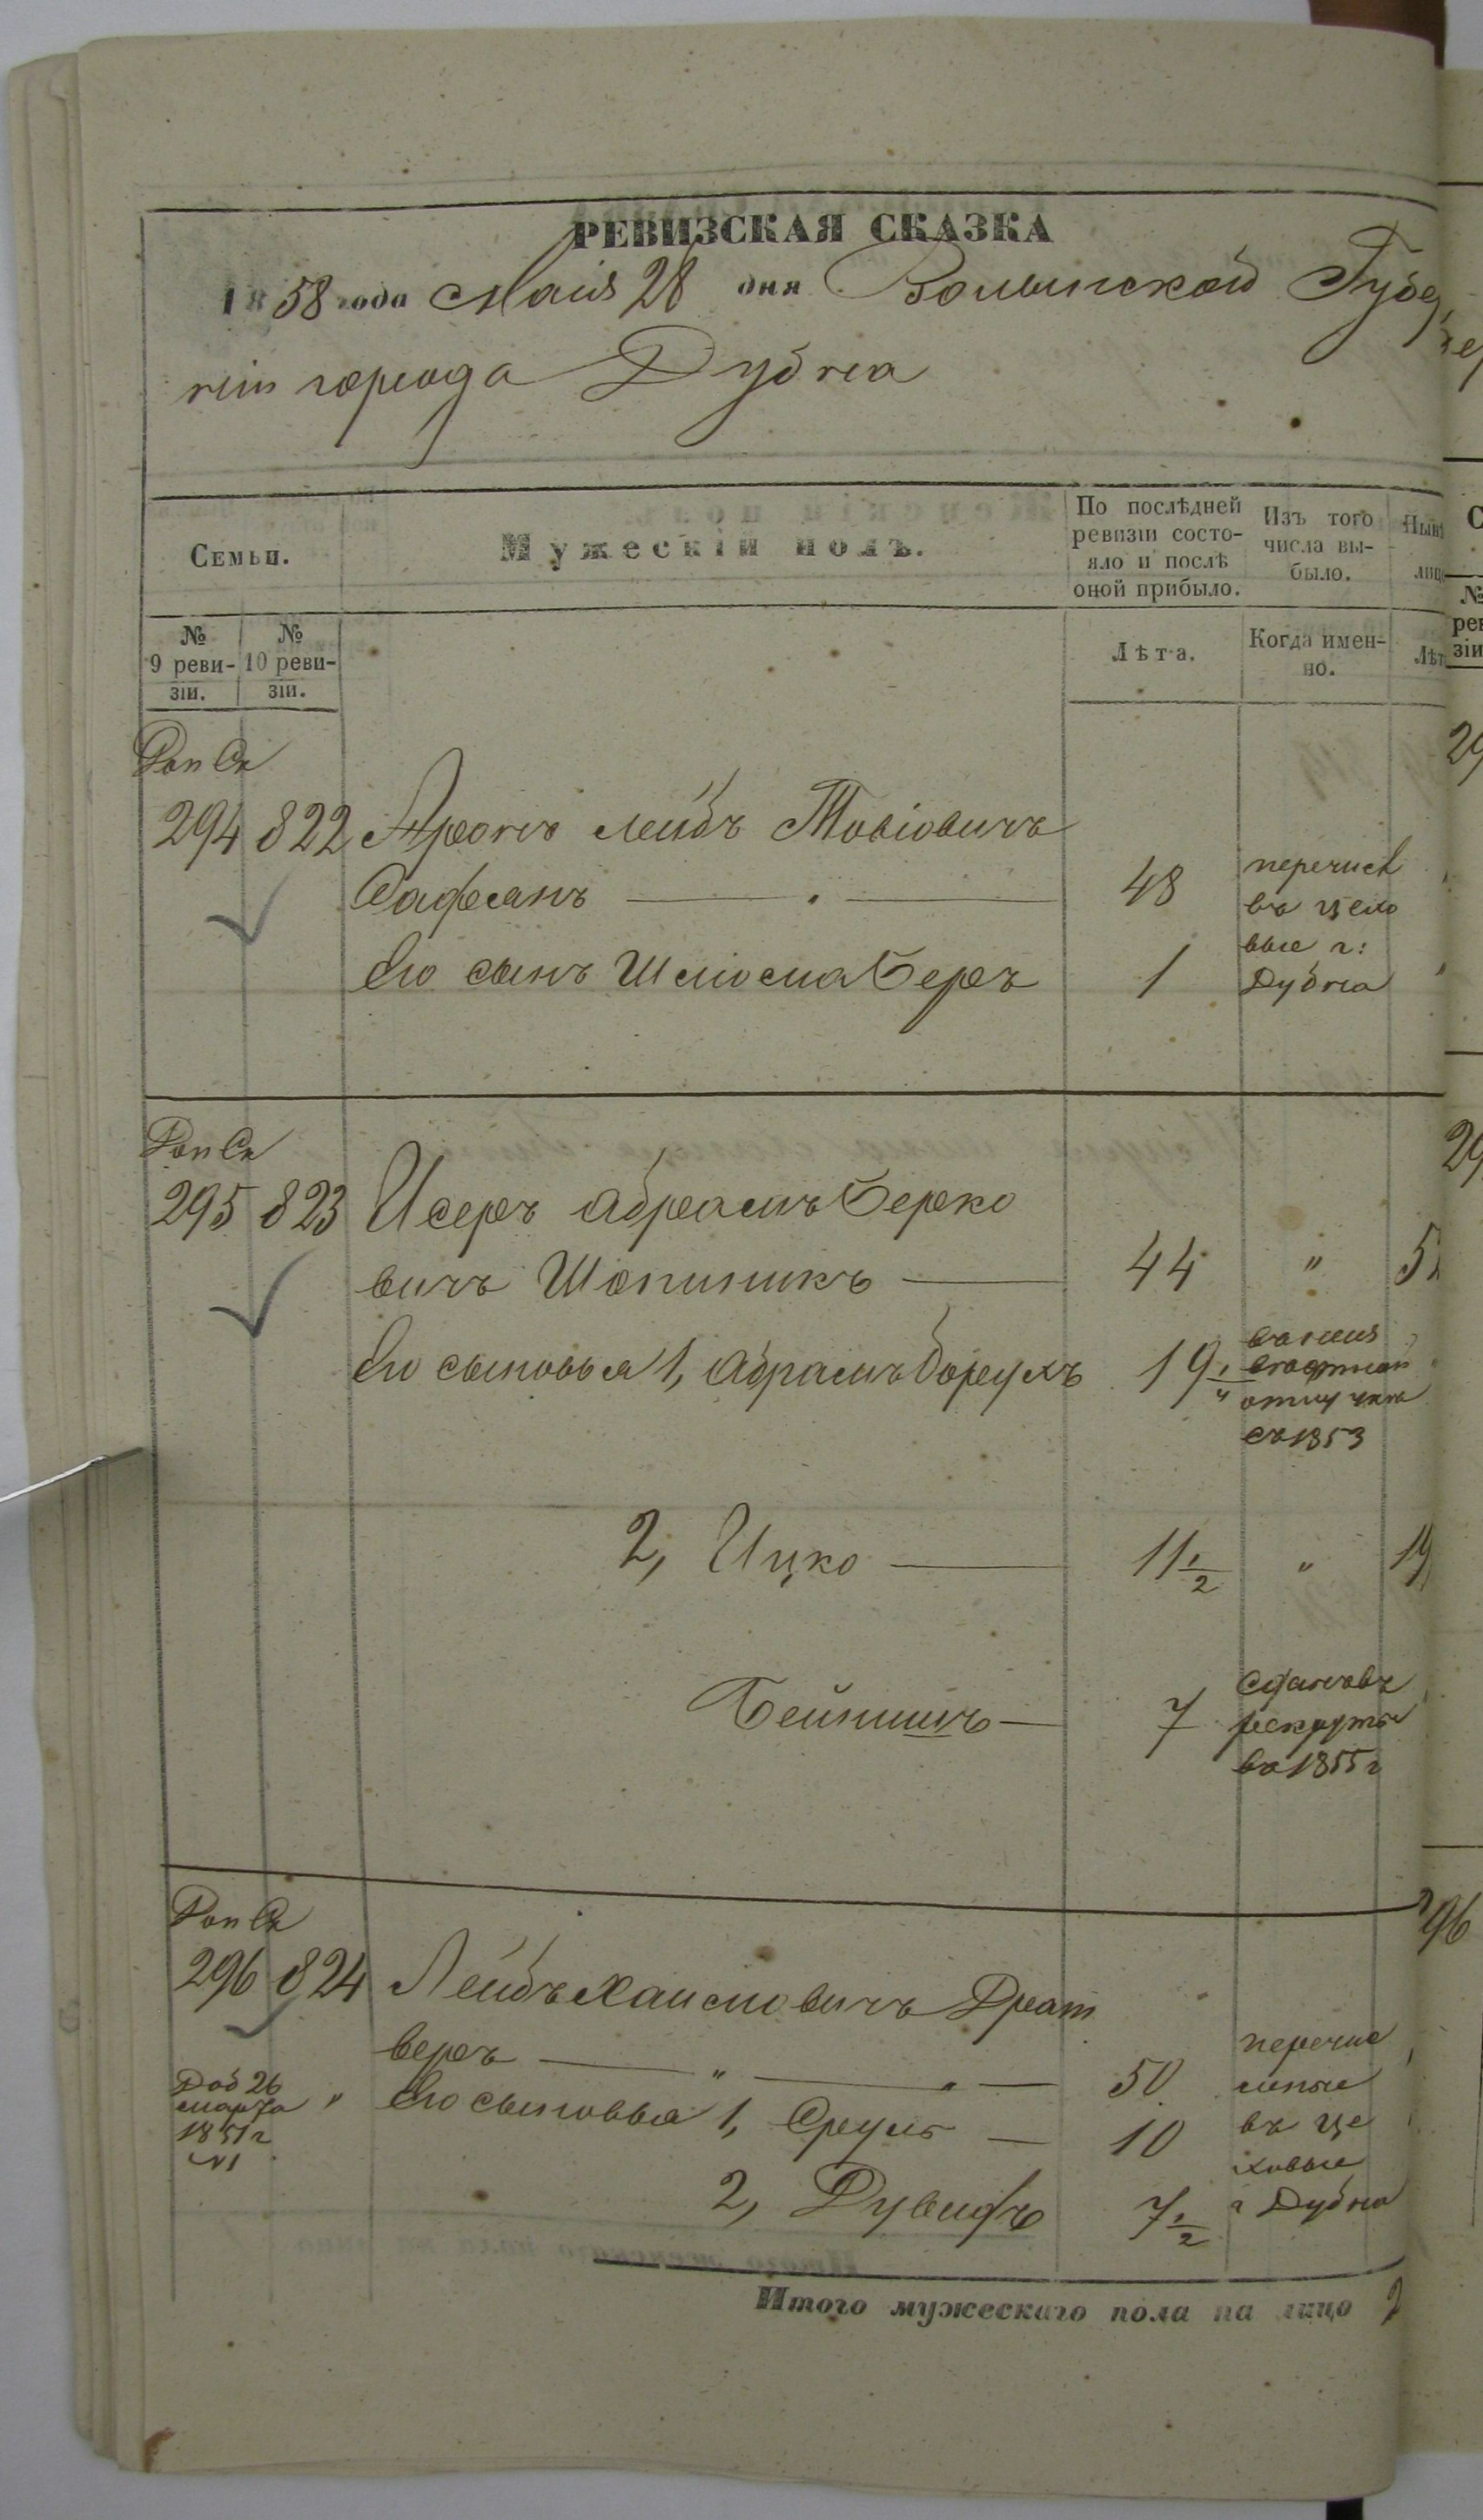 РЕВИЗСКАЯ СКАЗКА
1858 года Маия 28 дня Волынской Губер
ніи города Дубна
Семьи.
Мужескій полъ.
По послѣдней
ревизіи состо-
яло и послѣ
оной прибыло.
Изъ того
числа вы-
было.
Нынѣ
лицо
№
9 реви-
зіи.
№
10 реви-
зіи.
Лѣта.
Когда имен-
но.
Лѣт
294 822 Аронъ Лейбъ Товіовичъ
Сафранъ 48
перечисл
въ цехо
вые г:
Дубна
Его сынъ Шліома Беръ 1
295 823 Исеръ Абрамъ Берко
вичъ Шпиникъ 44 "
Его сыновья 1, Абрамъ Борухъ 19 1/4
отлучкѣ
съ 1853
2, Ицко 11 1/2 " 19
Бейнишъ 7
Сданъ въ
рекруты
въ 1855 г
296 824 Лейбъ Хаимовичъ Драт
веръ " " 50
перечис
лены
въ це
ховые
г Дубна
Доб 26
марта
1851 г
№1
" Его сыновья 1, Сруль 10
2, Дувидъ 7 1/2
Итого мужескаго пола на лицо